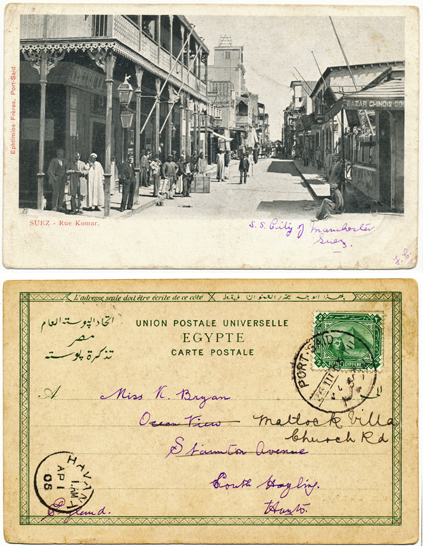 Ephtimios Frères, Port-Said
BAZAR CHINOIS
SUEZ - Rue Kumar.
S.S. City of Manchester
Suez.
L'adresse seule doit être écrite de ce côté
اتحاد البوستة العام
مصر
تذكرة بوستة
UNION POSTALE UNIVERSELLE
EGYPTE
CARTE POSTALE
PORT-SAID
A
Miss K. Bryan
Ocean View Matlock Villa
Church Rd
Staunton Avenue
South Hayling
Hants.
England.
HAVANT
AP 1
05